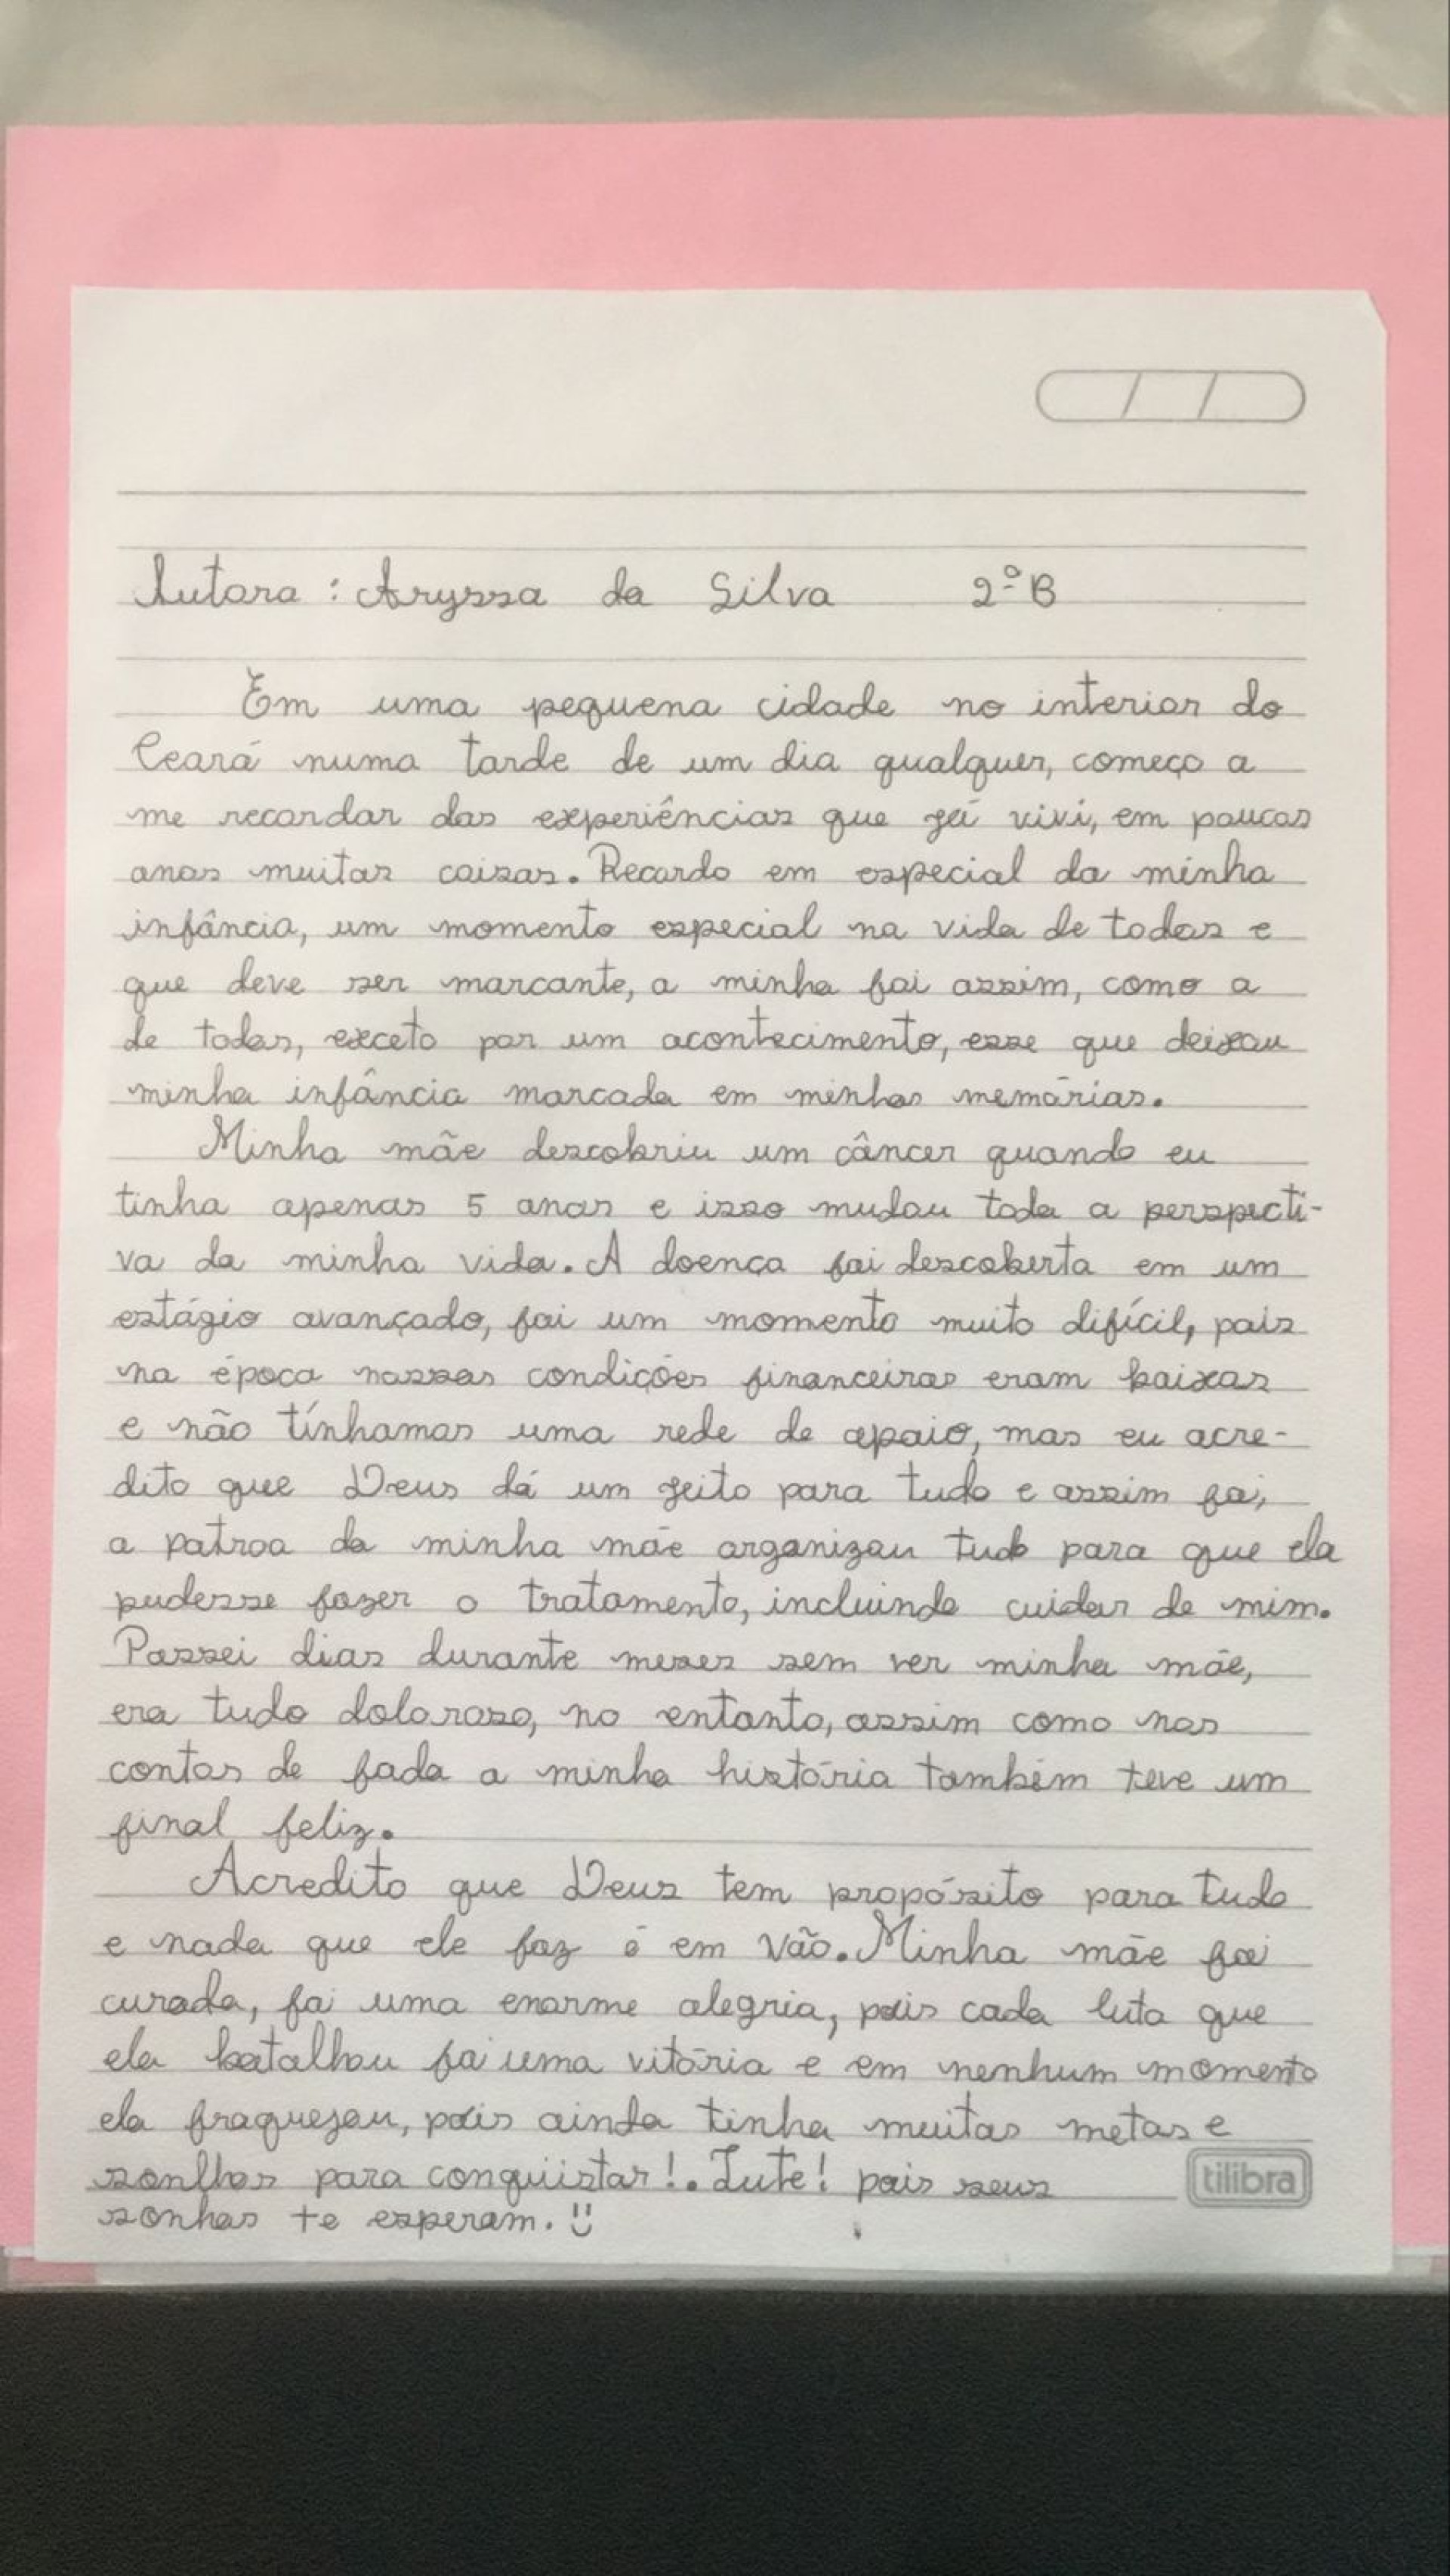 Autora: Aryssa da Silva 2º B
Em uma pequena cidade no interior do
Ceará numa tarde de um dia qualquer, começo a
me recordar das experiências que já vivi, em poucos
anos muitas coisas. Recordo em especial da minha
infância, um momento especial na vida de todos e
que deve ser marcante, a minha foi assim, como a
de todos, exceto por um acontecimento, esse que deixou
minha infância marcada em minhas memórias.
Minha mãe descobriu um câncer quando eu
tinha apenas 5 anos e isso mudou toda a perspecti-
va da minha vida. A doença foi descoberta em um
estágio avançado, foi um momento muito difícil, pois
na época nossas condições financeiras eram baixas
e não tínhamos uma rede de apoio, mas eu acre-
dito que Deus dá um jeito para tudo e assim foi,
a patroa da minha mãe organizou tudo para que ela
pudesse fazer o tratamento, incluindo cuidar de mim.
Passei dias durante meses sem ver minha mãe,
era tudo doloroso, no entanto, assim como nos
contos de fada a minha história também teve um
final feliz.
Acredito que Deus tem propósito para tudo
e nada que ele faz é em vão. Minha mãe foi
curada, foi uma enorme alegria, pois cada luta que
ela batalhou foi uma vitória e em nenhum momento
ela fraquejou, pois ainda tinha muitas metas e
sonlhos para conquistar!. Lute! pois seus
sonhos te esperam. !!
tilibra